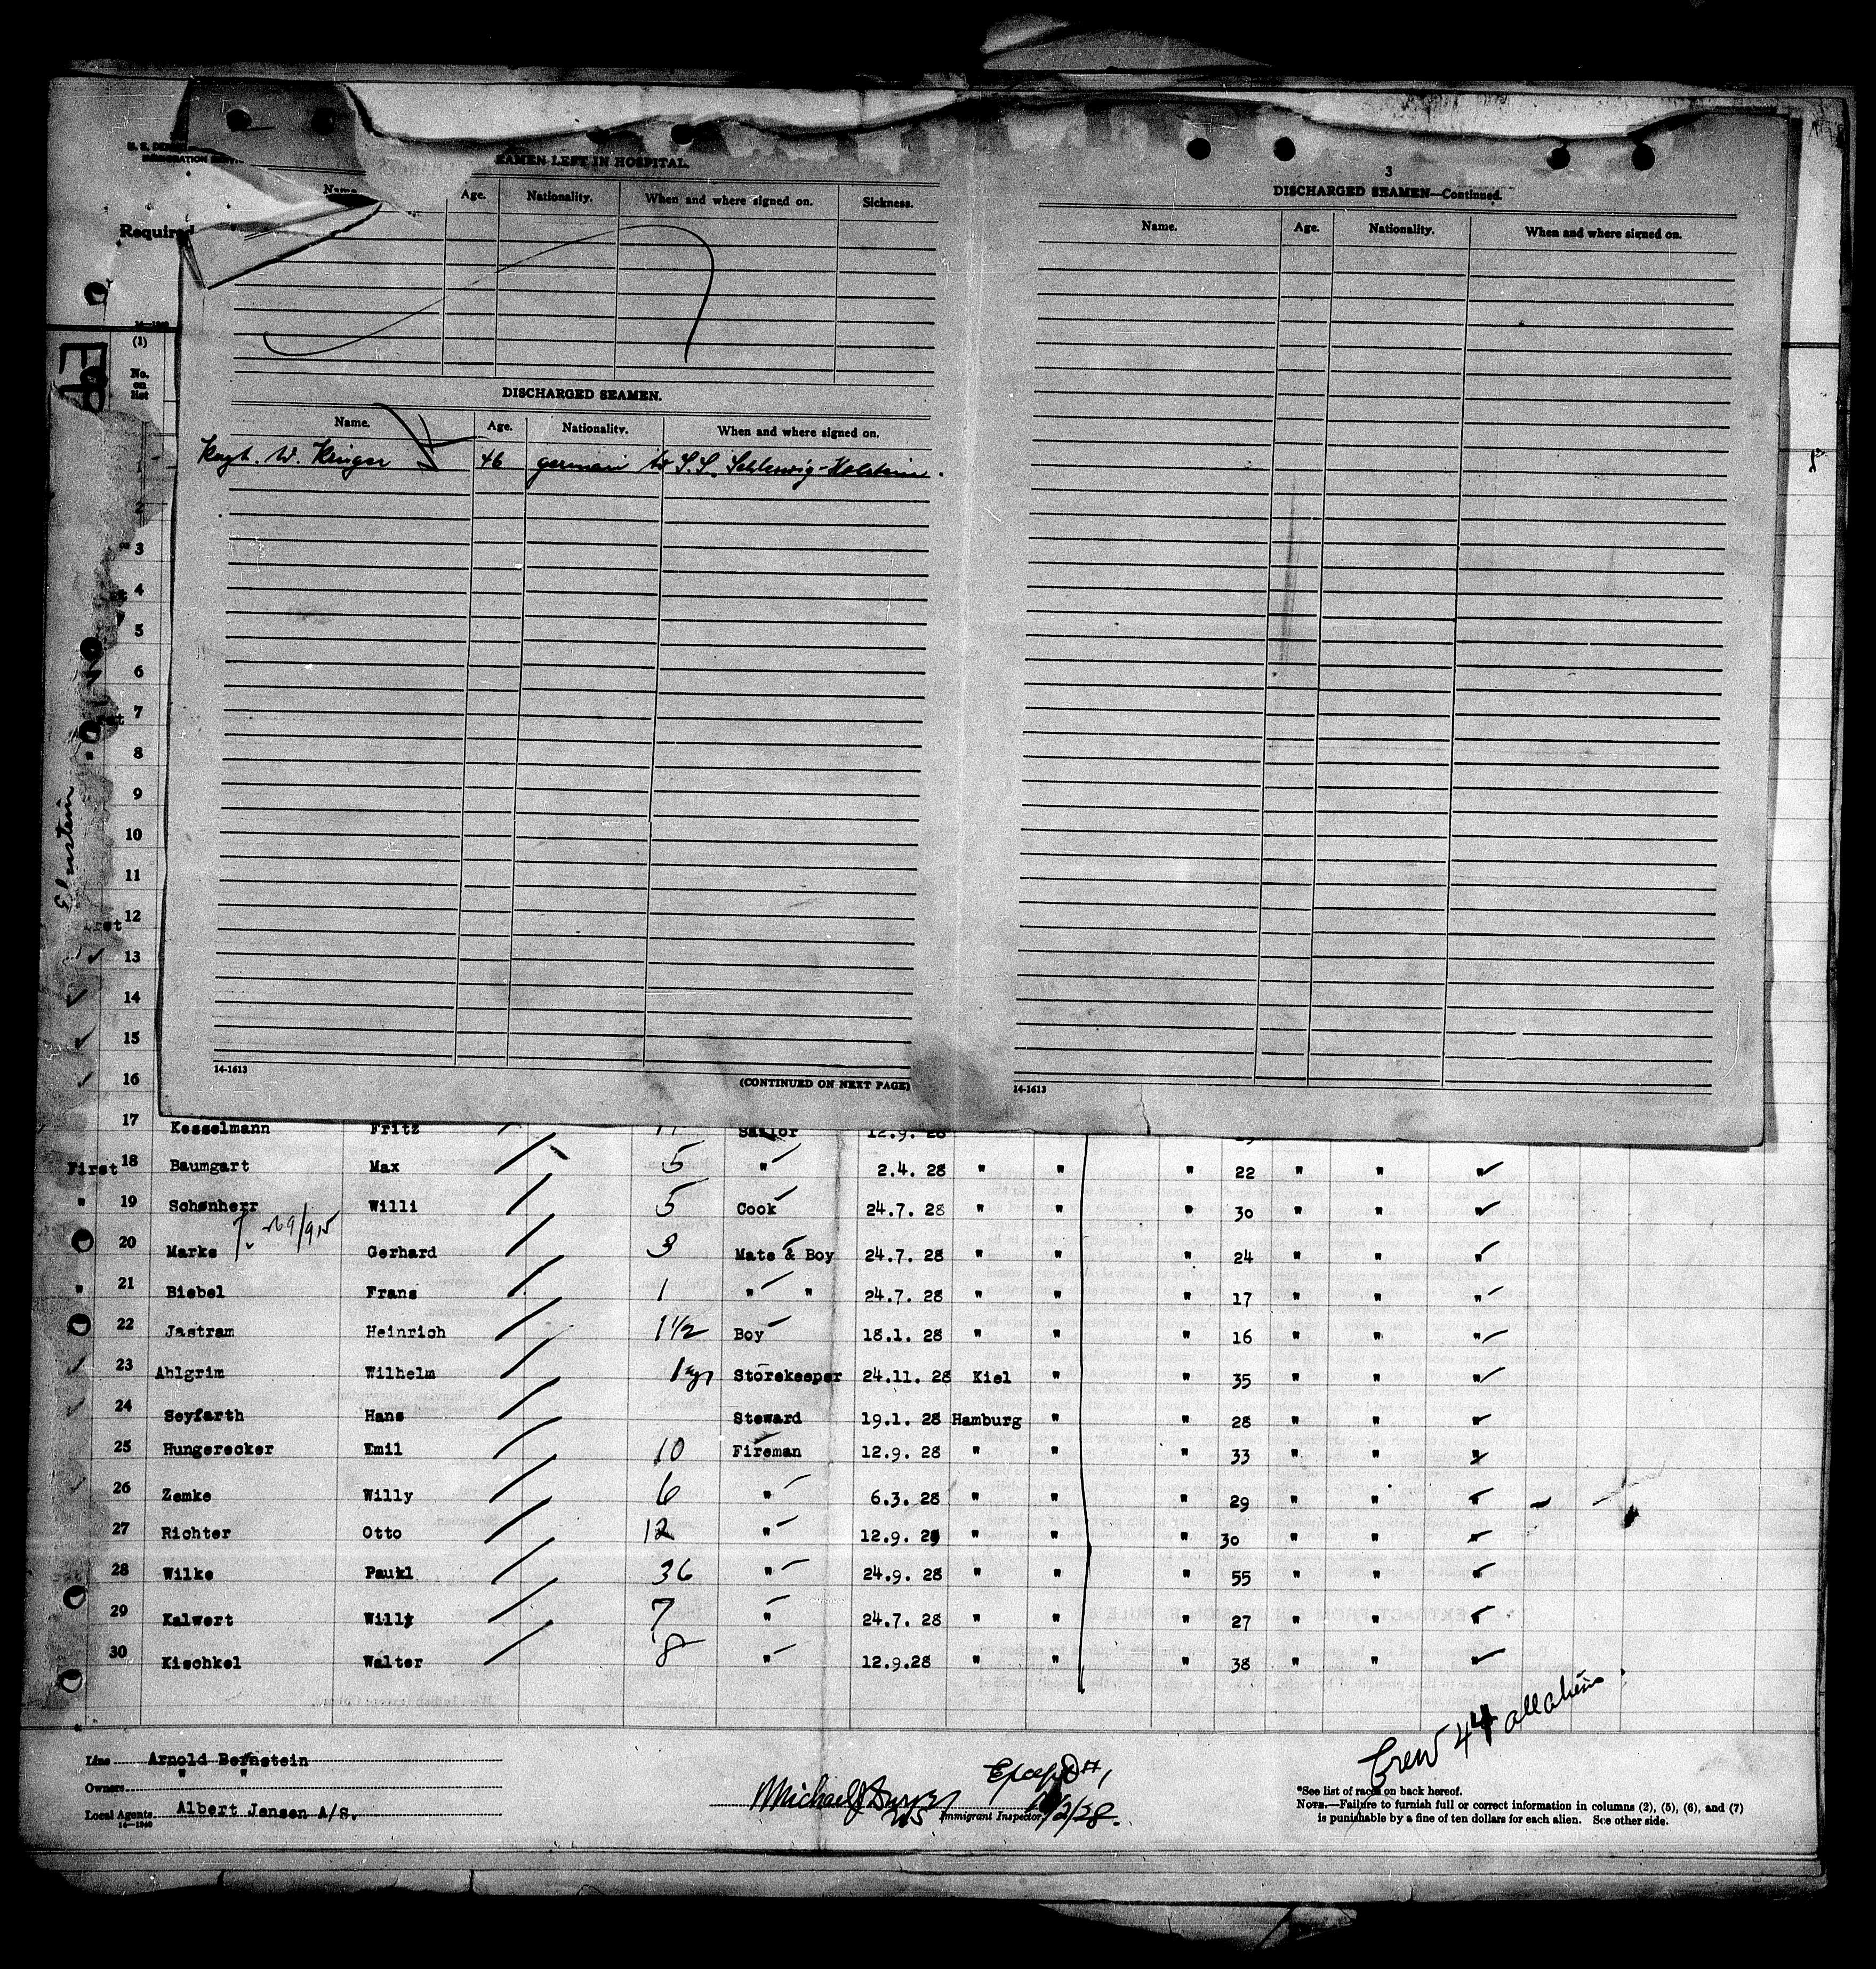 SEAMEN LEFT IN HOSPITAL.
Name. Age. Nationality. When and where signed on. Sickness.
Required
DISCHARGED SEAMEN.
Name. Age. Nationality. When and where signed on.
W. 46 german S.S. Schleswig-Holstein.
14-1613 (CONTINUED ON NEXT PAGE)
3
DISCHARGED SEAMEN—Continued.
Name. Age. Nationality. When and where signed on.
14-1613
(1)
No. on list
1
2
3
4
5
6
7
8
9
10
11
12
13
14
15
16
17 Kesselmann Fritz Sailor 12.9. 28
First 18 Baumgart Max 5 " 2.4. 28 " " " 22 " " "
" 19 Schønherr Willi 5 Cook 24.7. 28 " " " 30 " " "
20 Marks Gerhard 3 Mate & Boy 24.7. 28 " " " 24 " " "
" 21 Biebel Frans 1 " " 24.7. 28 " " " 17 " " "
22 Jastram Heinrich 1 1/2 Boy 18.1. 28 " " " 16 " " "
23 Ahlgrim Wilhelm Storekeeper 24.11. 28 Kiel " " 35 " " "
24 Seyfarth Hans Steward 19.1. 28 Hamburg " " 28 " " "
25 Hungerecker Emil 10 Fireman 12.9. 28 " " " 33 " " "
26 Zemke Willy 6 " 6.3. 28 " " " 29 " " "
27 Richter Otto 12 " 12.9. 28 " " " 30 " " "
28 Wilke Paukl 36 " 24.9. 28 " " " 55 " " "
29 Kalwert Willy 7 " 24.7. 28 " " " 27 " " "
30 Kischkel Walter 8 " 12.9.28 " " " 38 " " "
Crew 44 all aliens
Line Arnold Bernstein
Owners " "
Local Agents Albert Jensen A/S.
14—1240
Immigrant Inspector
*See list of races on back hereof.
NOTE.—Failure to furnish full or correct information in columns (2), (5), (6), and (7)
is punishable by a fine of ten dollars for each alien. See other side.